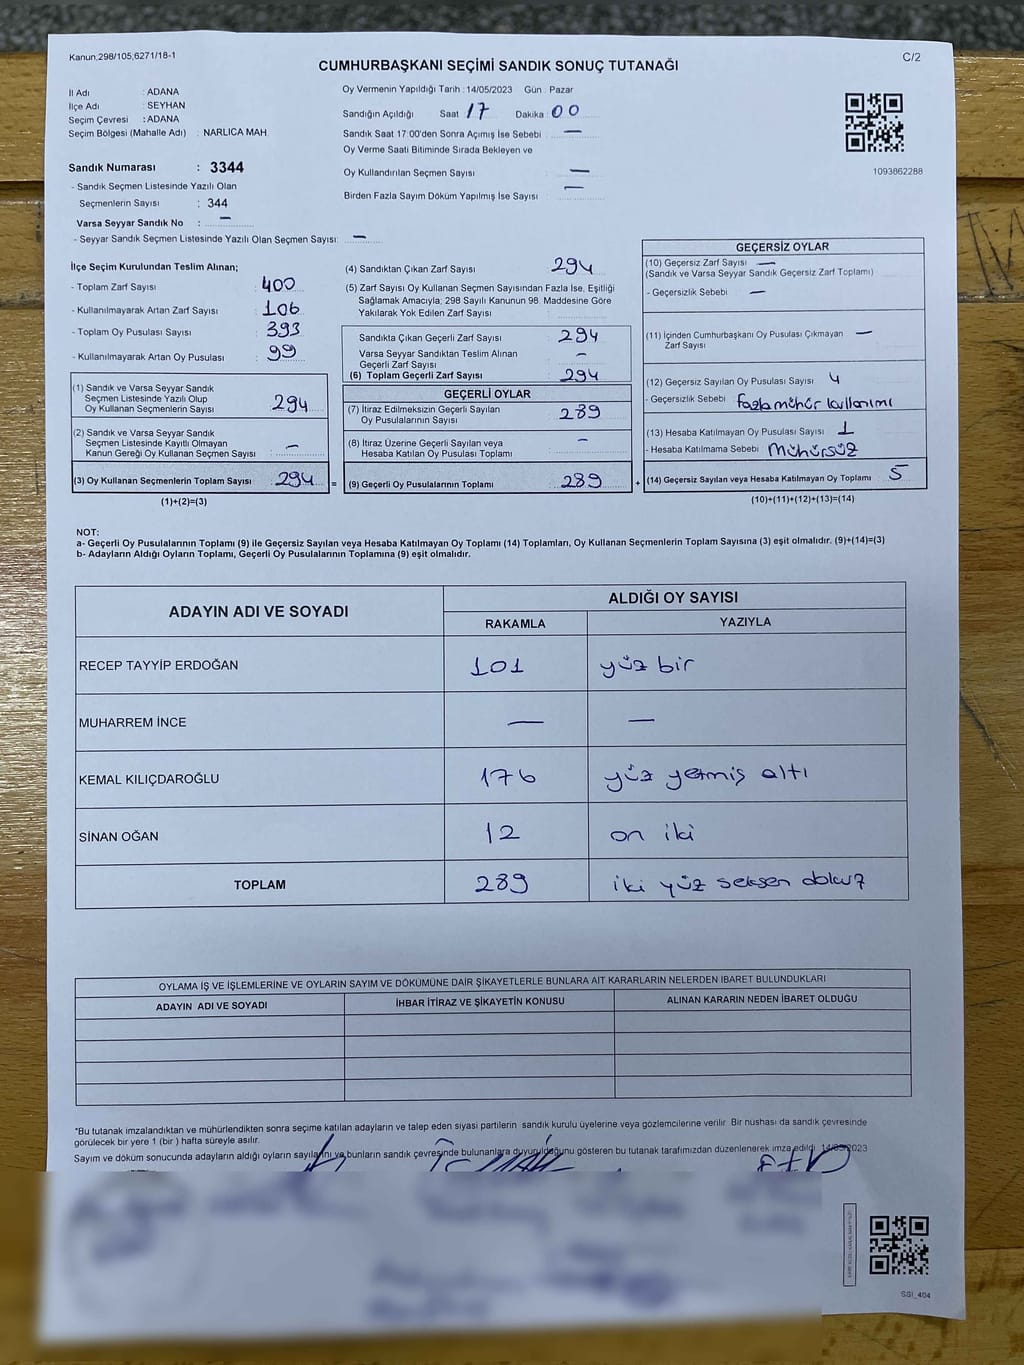 Kanun,298/105,6271/18-1
C/2
CUMHURBAŞKANI SEÇİMİ SANDIK SONUÇ TUTANAĞI
İl Adı : ADANA
İlçe Adı : SEYHAN
Seçim Çevresi : ADANA
Seçim Bölgesi (Mahalle Adı) : NARLICA MAH.
Sandık Numarası : 3344
- Sandık Seçmen Listesinde Yazılı Olan
Seçmenlerin Sayısı : 344
Varsa Seyyar Sandık No : —
- Seyyar Sandık Seçmen Listesinde Yazılı Olan Seçmen Sayısı: —
Oy Vermenin Yapıldığı Tarih : 14/05/2023 Gün : Pazar
Sandığın Açıldığı Saat 17 Dakika : 00
Sandık Saat 17:00'den Sonra Açımış İse Sebebi : —
Oy Verme Saati Bitiminde Sırada Bekleyen ve
Oy Kullandırılan Seçmen Sayısı : —
Birden Fazla Sayım Döküm Yapılmış İse Sayısı : —
1093862288
İlçe Seçim Kurulundan Teslim Alınan;
- Toplam Zarf Sayısı : 400
- Kullanılmayarak Artan Zarf Sayısı : 106
- Toplam Oy Pusulası Sayısı : 393
- Kullanılmayarak Artan Oy Pusulası : 99
(1) Sandık ve Varsa Seyyar Sandık
Seçmen Listesinde Yazılı Olup
Oy Kullanan Seçmenlerin Sayısı : 294
(2) Sandık ve Varsa Seyyar Sandık
Seçmen Listesinde Kayıtlı Olmayan
Kanun Gereği Oy Kullanan Seçmen Sayısı : —
(3) Oy Kullanan Seçmenlerin Toplam Sayısı : 294 =
(1)+(2)=(3)
(4) Sandıktan Çıkan Zarf Sayısı : 294
(5) Zarf Sayısı Oy Kullanan Seçmen Sayısından Fazla İse, Eşitliği
Sağlamak Amacıyla; 298 Sayılı Kanunun 98. Maddesine Göre
Yakılarak Yok Edilen Zarf Sayısı :
Sandıkta Çıkan Geçerli Zarf Sayısı : 294
Varsa Seyyar Sandıktan Teslim Alınan
Geçerli Zarf Sayısı : —
(6) Toplam Geçerli Zarf Sayısı : 294
GEÇERLİ OYLAR
(7) İtiraz Edilmeksizin Geçerli Sayılan
Oy Pusulalarının Sayısı : 289
(8) İtiraz Üzerine Geçerli Sayılan veya
Hesaba Katılan Oy Pusulası Toplamı : —
(9) Geçerli Oy Pusulalarının Toplamı : 289 +
GEÇERSİZ OYLAR
(10) Geçersiz Zarf Sayısı —
(Sandık ve Varsa Seyyar Sandık Geçersiz Zarf Toplamı)
- Geçersizlik Sebebi : —
(11) İçinden Cumhurbaşkanı Oy Pusulası Çıkmayan —
Zarf Sayısı
(12) Geçersiz Sayılan Oy Pusulası Sayısı 4
- Geçersizlik Sebebi : fazla mühür kullanımı
(13) Hesaba Katılmayan Oy Pusulası Sayısı : 1
- Hesaba Katılmama Sebebi : Mühürsüz
(14) Geçersiz Sayılan veya Hesaba Katılmayan Oy Toplamı : 5
(10)+(11)+(12)+(13)=(14)
NOT:
a- Geçerli Oy Pusulalarının Toplamı (9) ile Geçersiz Sayılan veya Hesaba Katılmayan Oy Toplamı (14) Toplamları, Oy Kullanan Seçmenlerin Toplam Sayısına (3) eşit olmalıdır. (9)+(14)=(3)
b- Adayların Aldığı Oyların Toplamı, Geçerli Oy Pusulalarının Toplamına (9) eşit olmalıdır.
ADAYIN ADI VE SOYADI
ALDIĞI OY SAYISI
RAKAMLA YAZIYLA
RECEP TAYYİP ERDOĞAN 101 yüz bir
MUHARREM İNCE — —
KEMAL KILIÇDAROĞLU 176 yüz yetmiş altı
SİNAN OĞAN 12 on iki
TOPLAM 289 iki yüz seksen dokuz
OYLAMA İŞ VE İŞLEMLERİNE VE OYLARIN SAYIM VE DÖKÜMÜNE DAİR ŞİKAYETLERLE BUNLARA AİT KARARLARIN NELERDEN İBARET BULUNDUKLARI
ADAYIN ADI VE SOYADI İHBAR İTİRAZ VE ŞİKAYETİN KONUSU ALINAN KARARIN NEDEN İBARET OLDUĞU
*Bu tutanak imzalandıktan ve mühürlendikten sonra seçime katılan adayların ve talep eden siyasi partilerin sandık kurulu üyelerine veya gözlemcilerine verilir. Bir nüshası da sandık çevresinde
görülecek bir yere 1 (bir ) hafta süreyle asılır.
Sayım ve döküm sonucunda adayların aldığı oyların sayılarını ve bunların sandık çevresinde bulunanlara duyurulduğunu gösteren bu tutanak tarafımızdan düzenlenerek imza edildi. 14/05/2023
SSI_404